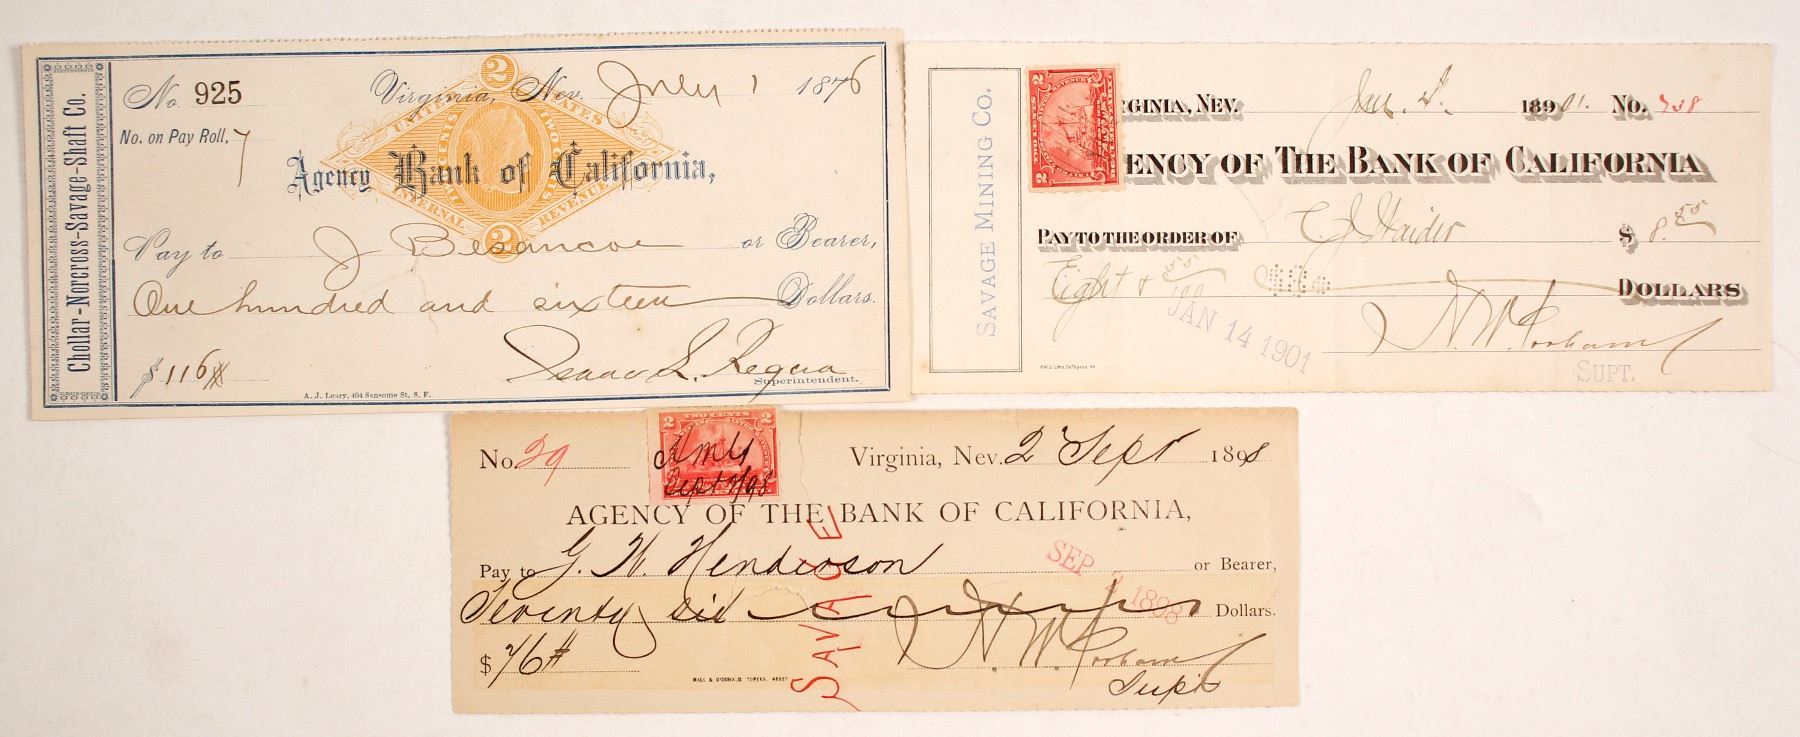 Chollar-Norcross-Savage-Shaft Co.
No. 925
Virginia, Nev. July 1 1876
No. on Pay Roll, 7
UNITED STATES
INTERNAL REVENUE
TWO CENTS
2
2
Agency Bank of California,
Pay to J Besancoe or Bearer,
One hundred and sixteen Dollars.
$ 116
Isaac L. Requa
Superintendent.
A. J. Leary, 404 Sansome St., S. F.
SAVAGE MINING CO.
2 2
2 2
RGINIA, NEV. Jan. 1890 1901. No. 738
ENCY OF THE BANK OF CALIFORNIA
PAY TO THE ORDER OF C. J. Haider $ 8.55
Eight & 55/100 DOLLARS
JAN 14 1901
SUPT.
TWO CENTS
2 2
No. 29
Sept 2/98
Virginia, Nev. 2 Sept 1898
AGENCY OF THE BANK OF CALIFORNIA,
Pay to G. W. Henderson or Bearer,
SEP 2 1898
Seventy six Dollars.
$ 76
SAVAGE
HALL & O'DONALD, TOPEKA
Supt